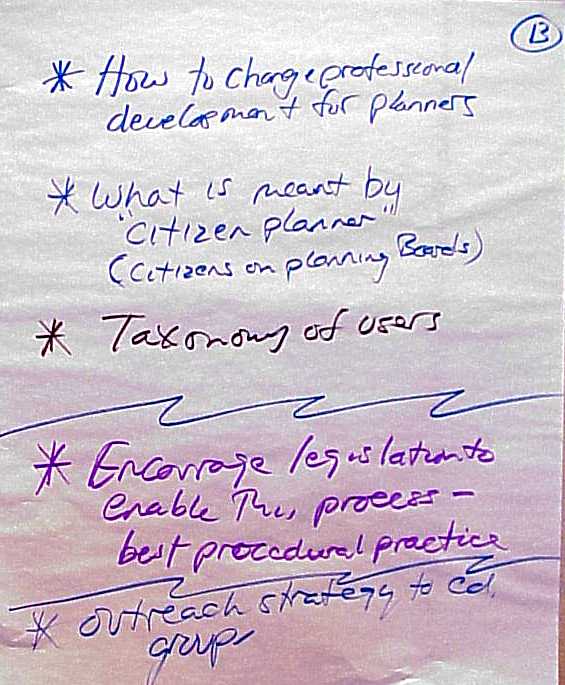 13
* How to change professional
development for planners
* What is meant by
"citizen planner"
(citizens on planning Boards)
* Taxonomy of users
* Encourage legislation to
enable This process -
best procedural practice
* outreach strategy to
groups